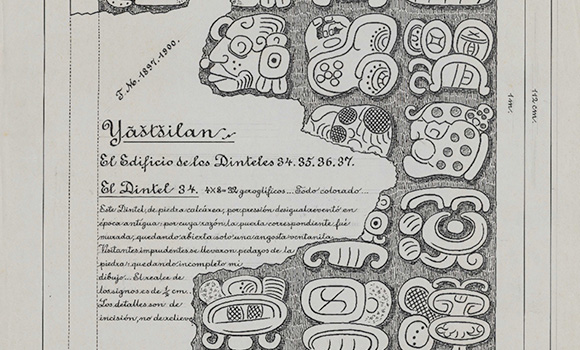 T. No. 1897.-1900.
Yāštšilan
El Edificio de los Dinteles 34. 35. 36. 37.
El Dintel 34. 4x8=32 geroglíficos... Todo colorado...
Este Dintel, de piedra calcárea; por presión desigual reventó en
época antigua; por cuya razón la puerta correspondiente fué
murada; quedando abierta solo una angosta ventanilla.
Visitantes imprudentes se llevaron pedazos de la
piedra; quedando incompleto mi
dibujo... El realce de
los signos es de ½ cm.
Los detalles son de
incisión, no de relieve
1 m.
112 cm.